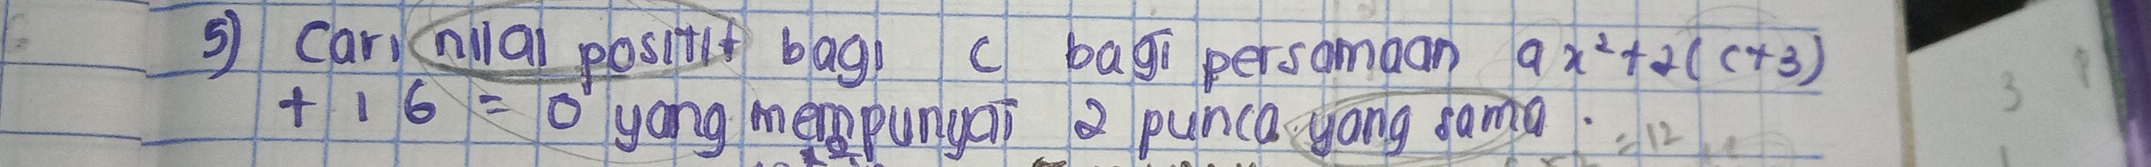 5) Cari nilai positif bagi c bagi persamaan 9x²+2(c+3)
+ 16 = 0 yang mempunyai 2 punca yang sama.
= 12
3